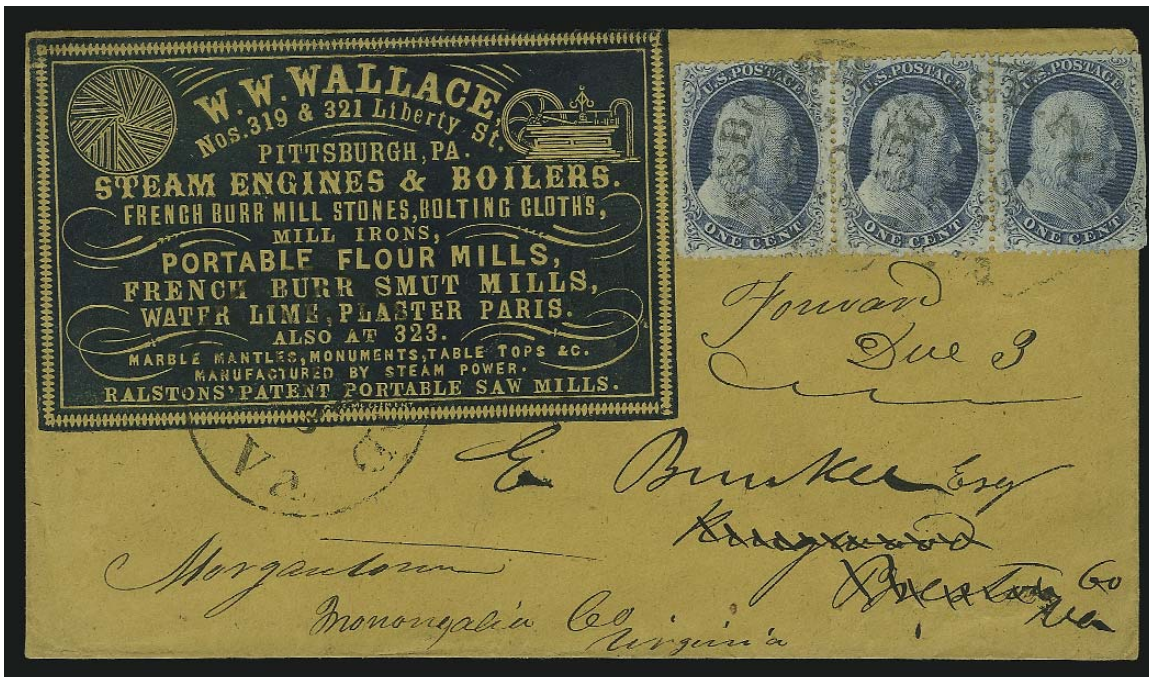 W. W. WALLACE,
Nos. 319 & 321 Liberty St.
PITTSBURGH, PA.
STEAM ENGINES & BOILERS.
FRENCH BURR MILL STONES, BOLTING CLOTHS,
MILL IRONS,
PORTABLE FLOUR MILLS,
FRENCH BURR SMUT MILLS,
WATER LIME, PLASTER PARIS.
ALSO AT 323.
MARBLE MANTLES, MONUMENTS, TABLE TOPS &C.
MANUFACTURED BY STEAM POWER.
RALSTONS' PATENT PORTABLE SAW MILLS.
U.S. POSTAGE
ONE CENT
U.S. POSTAGE
ONE CENT
U.S. POSTAGE
ONE CENT
Forward
Due 3
E Bunker Esq
Kingwood
Preston Co
Va
Morgantown
Monongalia Co
Virginia